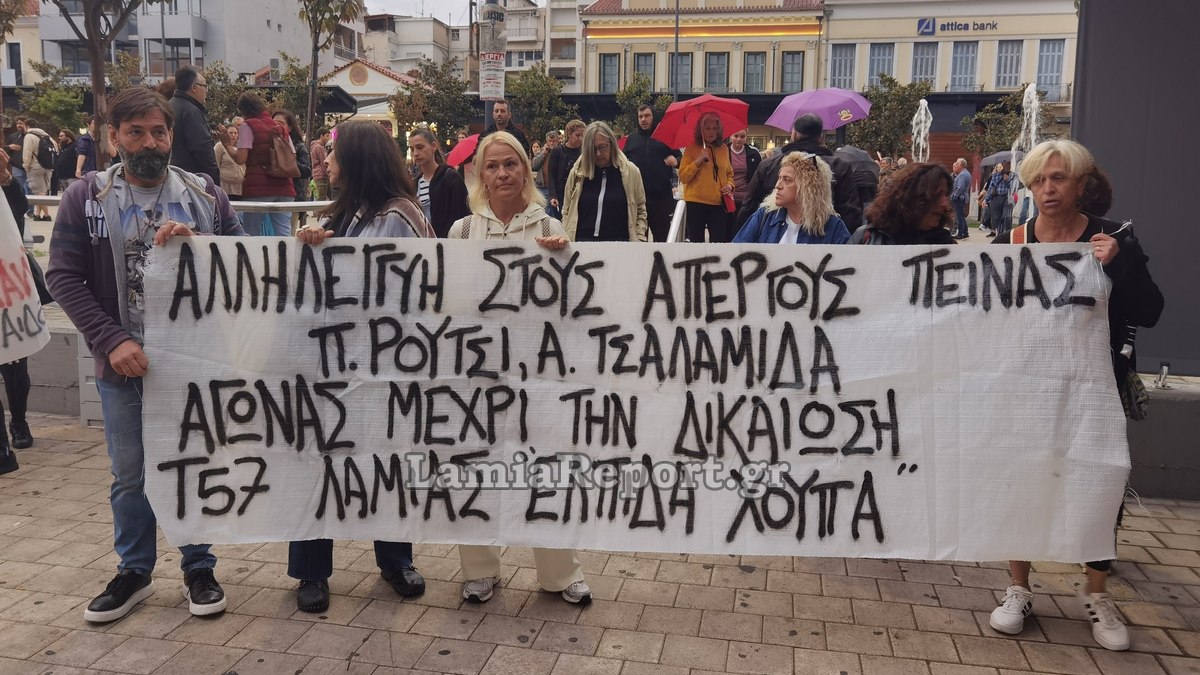 attica bank
ΑΛΛΗΛΕΓΓΥΗ ΣΤΟΥΣ ΑΠΕΡΓΟΥΣ ΠΕΙΝΑΣ
Π. ΡΟΥΤΣΙ, Α. ΤΣΑΛΑΜΙΔΑ
ΑΓΩΝΑΣ ΜΕΧΡΙ ΤΗΝ ΔΙΚΑΙΩΣΗ
Τ57 ΛΑΜΙΑΣ "ΕΛΠΙΔΑ ΧΟΥΠΑ"
LamiaReport.gr